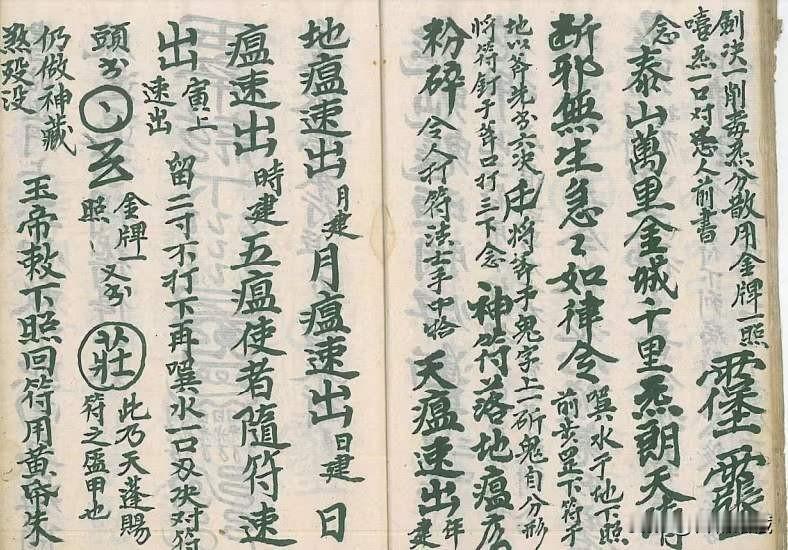 劍決一削毒炁分散用金牌一照
炁一口对患人前書
念 泰山萬里金城千里炁朗天清
断邪無生急々如律令
噀水于地下照
前步罡下符于
地以斧先书六次 将斧于鬼字上一斫鬼自分形
将符釘于斧口打三下念 神符落地瘟
粉碎 令人打符法士手中恰 天瘟速出 年建
地瘟速出 月建 月瘟速出 日建 日
瘟速出 時建 五瘟使者隨符速
出 寅上速出 留二寸不打下再噀水一口 决对符
頭书 金牌一照 又书 莊 此乃天蓬賜
符之盔甲也
仍做神藏
煞毀没 玉帝敕下照回符用黄帝朱